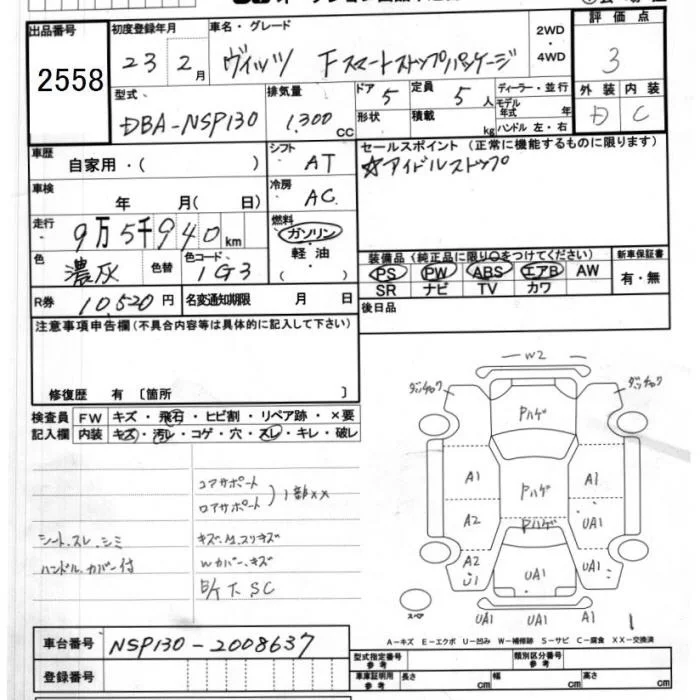 出品番号 初度登録年月 車名・グレード 2WD・4WD 評価点
2558 23 2月 ヴィッツ Fスマートストップパッケージ 3
型式 排気量 ドア 5 定員 5人 ディーラー・並行 外装 内装
DBA-NSP130 1,300 CC 形状 積載 kg モデル年式 年 ハンドル 左・右 D C
車歴 自家用・( ) シフト AT セールスポイント (正常に機能するものに限ります)
☆アイドルストップ
車検 年 月( 日) 冷房 AC
走行 9万5千940km 燃料 ガソリン・軽油・( )
色 濃灰 色替 色コード 1G3 装備品(純正品に限り○をつけてください) 新車保証書
PS PW ABS エアB AW 有・無
SR ナビ TV カワ
R券 10,520円 名変通知期限 月 日 後日品
注意事項申告欄(不具合内容等は具体的に記入して下さい)
修復歴 有 〔箇所 〕
検査員 FW キズ・飛石・ヒビ割・リペア跡・×要
記入欄 内装 キズ・汚レ・コゲ・穴・スレ・キレ・破レ
コアサポート
ロアサポート ) 1部XX
シート、スレ、シミ キズ、M、スリキズ
ハンドル、カバー付 Wカバー、キズ
B/Y 下、SC
W2
ダッチャク ダッチャク
Pハゲ
A1 Pハゲ A1
A2 Pハゲ UA1
A2 U1 UA1 UA1
スペア UA1 UA1 A1
A-キズ E-エクボ U-凹み W-補修跡 S-サビ C-腐食 XX-交換済
車台番号 NSP130-2008637
型式指定番号 参考 類別区分番号 参考
登録番号 車庫証明用 参考 長さ cm 幅 cm 高さ cm